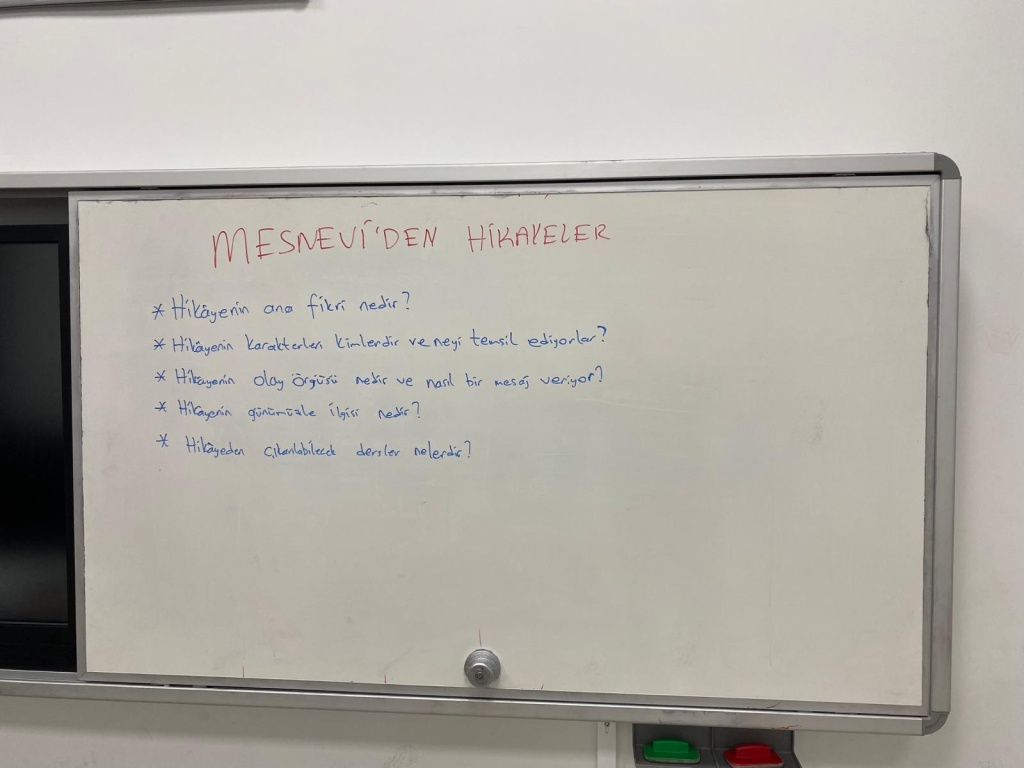 MESNEVİ'DEN HİKAYELER
* Hikâyenin ana fikri nedir?
* Hikâyenin karakterleri kimlerdir ve neyi temsil ediyorlar?
* Hikayenin olay örgüsü nedir ve nasıl bir mesaj veriyor?
* Hikayenin günümüzle ilgisi nedir?
* Hikâyeden çıkarılabilecek dersler nelerdir?